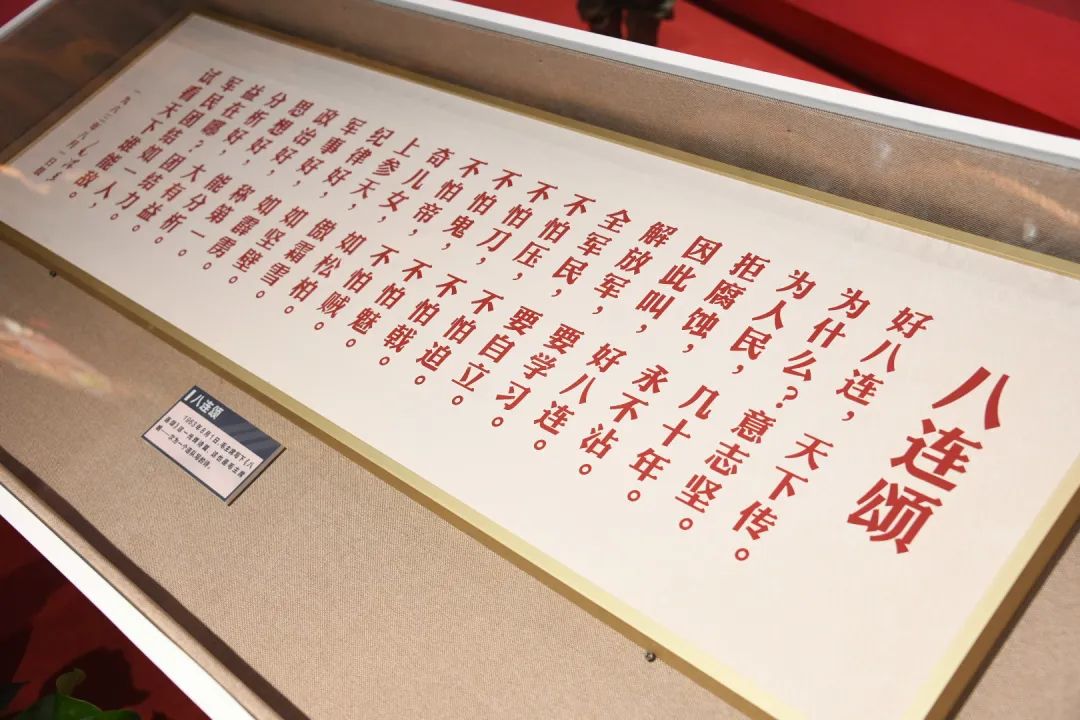 八连颂
好八连，天下传。
为什么？意志坚。
为人民，几十年。
拒腐蚀，永不沾。
因此叫，好八连。
解放军，要学习。
全军民，要自立。
不怕压，不怕迫。
不怕刀，不怕戟。
不怕鬼，不怕魅。
不怕帝，不怕贼。
奇儿女，如松柏。
上参天，傲霜雪。
纪律好，如坚壁。
军事好，如霹雳。
政治好，称第一。
思想好，能分析。
分析好，大有益。
益在哪？团结力。
军民团结如一人，
试看天下谁能敌。
一九六三年八月一日
八连颂
1963年8月1日，毛主席写下《八
连颂》这一光辉诗篇，这也是毛主席
唯一一次为一个连队写的诗。